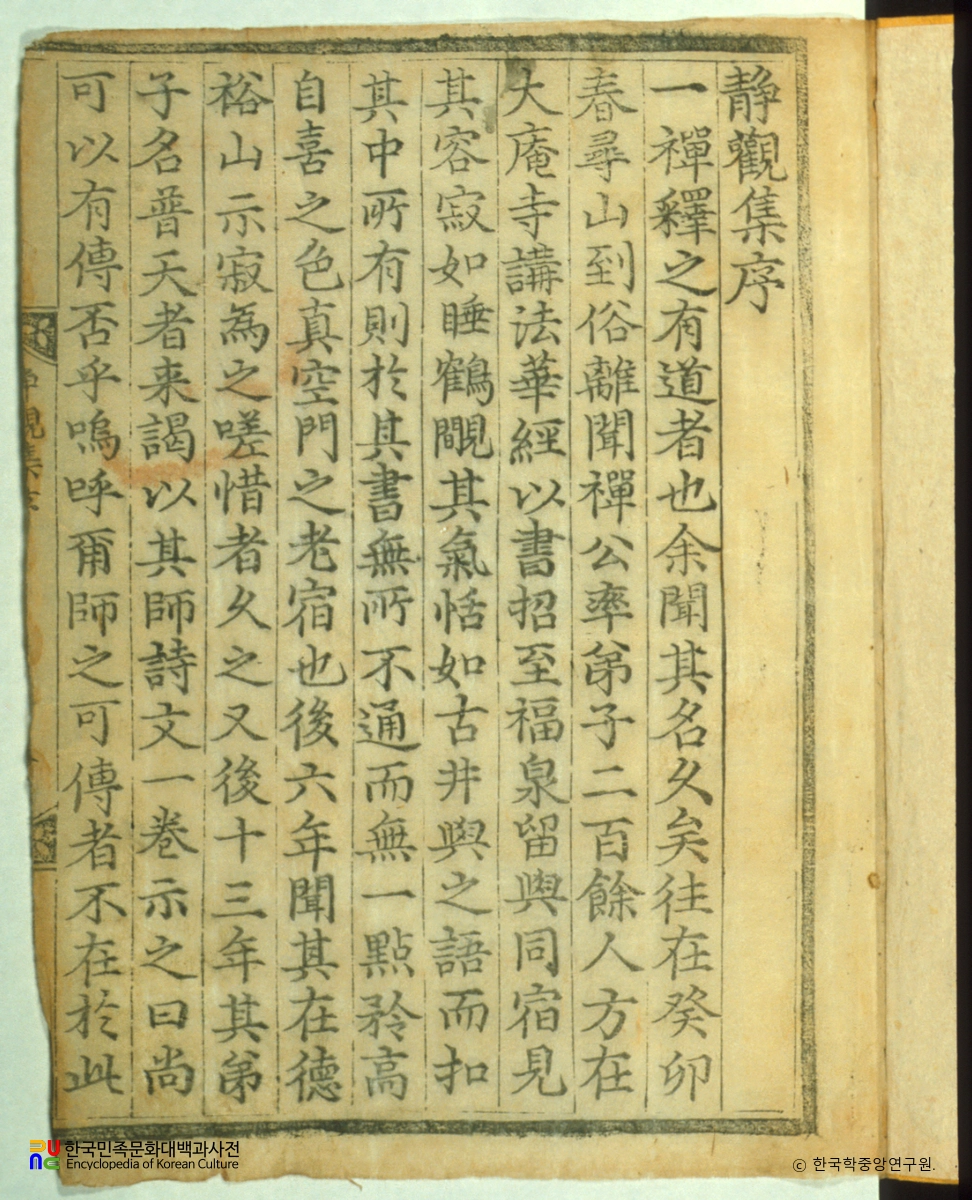 静觀集序
一禪釋之有道者也余聞其名久矣往在癸卯
春尋山到俗離聞禪公率弟子二百餘人方在
大庵寺講法華經以書招至福泉留與同宿見
其容寂如睡鶴覵其氣恬如古井與之語而扣
其中所有則於其書無所不通而無一點矜高
自喜之色真空門之老宿也後六年聞其在德
裕山示寂為之嗟惜者久之又後十三年其弟
子名普天者来謁以其師詩文一卷示之曰尚
可以有傳否乎嗚呼爾師之可傳者不在於此
한국민족문화대백과사전
Encyclopedia of Korean Culture
ⓒ 한국학중앙연구원.